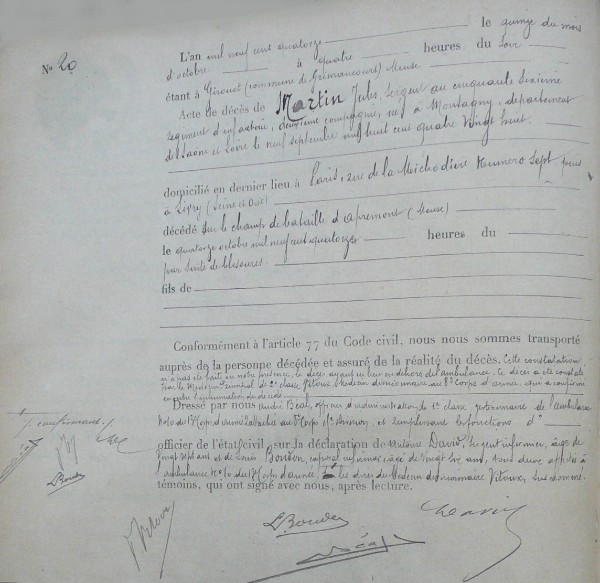 No 20
L'an mil neuf cent quatorze le quinze du mois
d'octobre à quatre heures du soir
étant à (commune de Grimaucourt) Meuse
Acte de décès de Martin Jules, sergent au cinquante sixième
régiment d'infanterie, deuxième compagnie, né à Montagny, département
de Saône et Loire le neuf septembre mil huit cent quatre vingt huit.
domicilié en dernier lieu à Paris, rue de la Michodière numéro sept, puis
à Livry (Seine et Oise)
décédé sur le champ de bataille d'Apremont (Meuse)
le quatorze octobre mil neuf cent quatorze heures du
par suite de blessures
fils de
Conformément à l'article 77 du Code civil, nous nous sommes transporté
auprès de la personne décédée et assuré de la réalité du décès. Cette constatation
n'a pas été faite en notre présence, le décès ayant eu lieu en dehors de l'ambulance. Ce décès a été constaté
par le Médecin de 2e classe Vitoux, Médecin divisionnaire au 8e Corps d'armée, qui a confirmé
l'inhumation du décédé
Dressé par nous André Béal, officier d'administration de 1e classe gestionnaire de l'ambulance
No 10 du 7e Corps d'armée au 8e Corps, et remplissant les fonctions d'
officier de l'état civil, sur la déclaration de Antoine David, sergent infirmier, âgé de
vingt sept ans et de Louis Boudon, caporal infirmier, âgé de vingt six ans, tous deux à
l'ambulance No 10 du 7e Corps d'armée, les dires du Médecin divisionnaire Vitoux, susnommé.
témoins, qui ont signé avec nous, après lecture.
L. Boudon
Béal
David